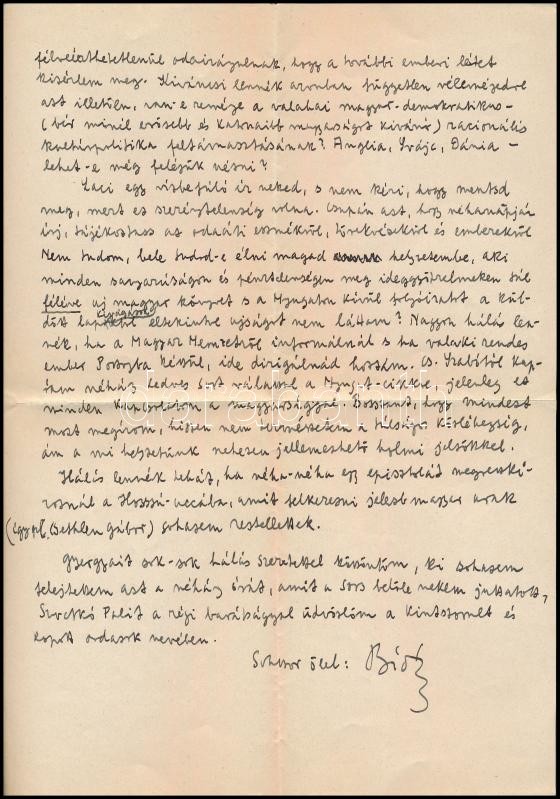 félreérthetetlenül odairányulnak, hogy a további emberi létet
kisérlem meg. Kiváncsi lennék azonban független véleményedre
azt illetően, van-e reménye a valahai magyar-demokratikus-
(bér minél erősebb és katonaibb magyarságot kivánó) racionális
kultúrpolitika feltámasztásának? Anglia, Svájc, Dánia –
lehet-e még feléjük nézni?
Laci egy vízbefúló ír neked, s nem kéri, hogy mentsd
meg, mert ez szerénytelenség volna. Csupán azt, hogy néhanapján
írj, tájékoztass az odaáti eszmékről, törekvésekről és emberekről
Nem tudom, bele tudod-e élni magad helyzetembe, aki
minden sanyarúságon és pénztelenségen meg ideggyötrelmeken túl
féléve új magyar könyvet s a Nyugaton kívül folyóiratot a kül-
dött lap kivágásoktól eltekintve ujságot nem láttam? Nagyon hálás len-
nék, ha a Magyar Nemzetről informálnál s ha valaki rendes
ember Pozsonyba készül, ide dirigálnád hozzám. Cs. Szabótól kap-
tam néhány kedves sort válaszul a Nyugat-cikkre, jelenleg ez
minden kontaktusom a magyarsággal. Bosszant, hogy mindezt
most megírom, hiszen nem természetem a túlságos közlékenység,
ám a mi helyzetünk nehezen jellemezhető holmi jelzőkkel.
Hálás lennék tehát, ha néha-néha egy episztolád megereszkí-
roznál a Hosszú-uccába, amit felkeresni jelesb magyar urak
(így pl. Bethlen Gábor) sohasem restellettek.
Gyergyait sok-sok hálás szeretettel köszöntöm, ki sohasem
felejtettem azt a néhány órát, amit a Sors belőle nekem juttatott,
Szvetkó Palit a régi barátsággal üdvözlöm a kintszorult és
kopott ordasok nevében.
Sokszor ölel: